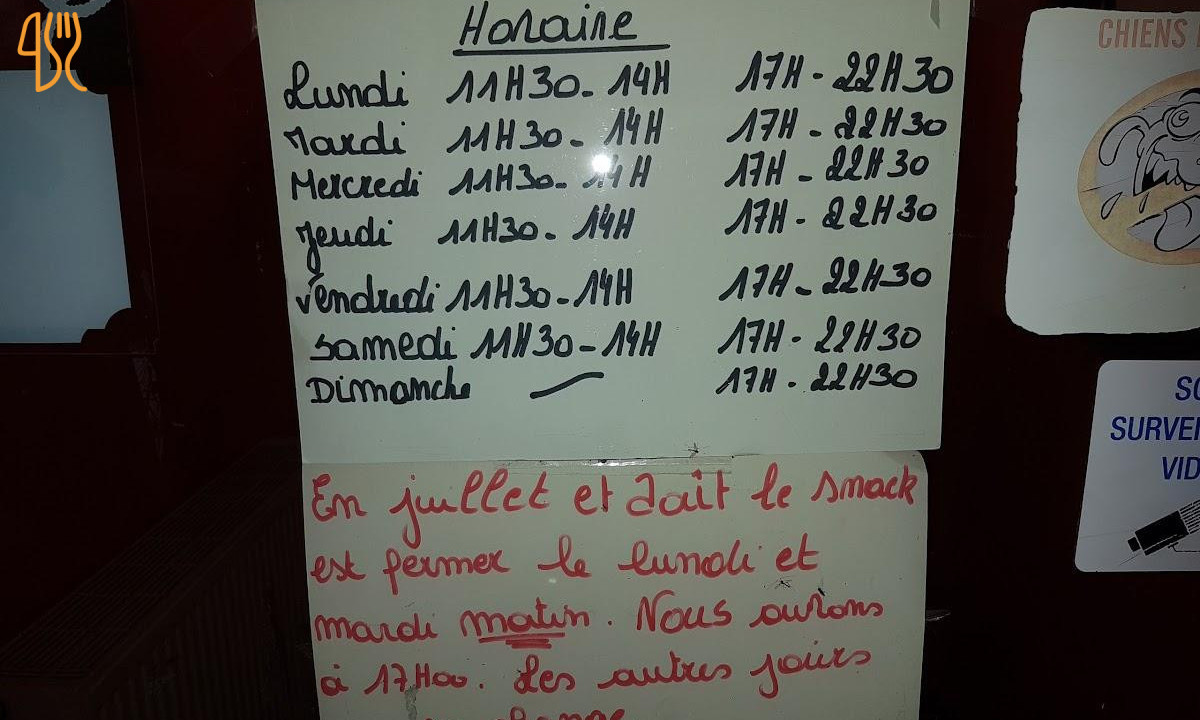 Horaire
Lundi 11H30 - 14H 17H - 22H30
Mardi 11H30 - 14H 17H - 22H30
Mercredi 11H30 - 14H 17H - 22H30
Jeudi 11H30 - 14H 17H - 22H30
Vendredi 11H30 - 14H 17H - 22H30
Samedi 11H30 - 14H 17H - 22H30
Dimanche — 17H - 22H30
En juillet et août le snack
est fermer le lundi et
mardi matin. Nous ouvrons
à 17H00. Les autres jours
CHIENS
SO
SURVEI
VID